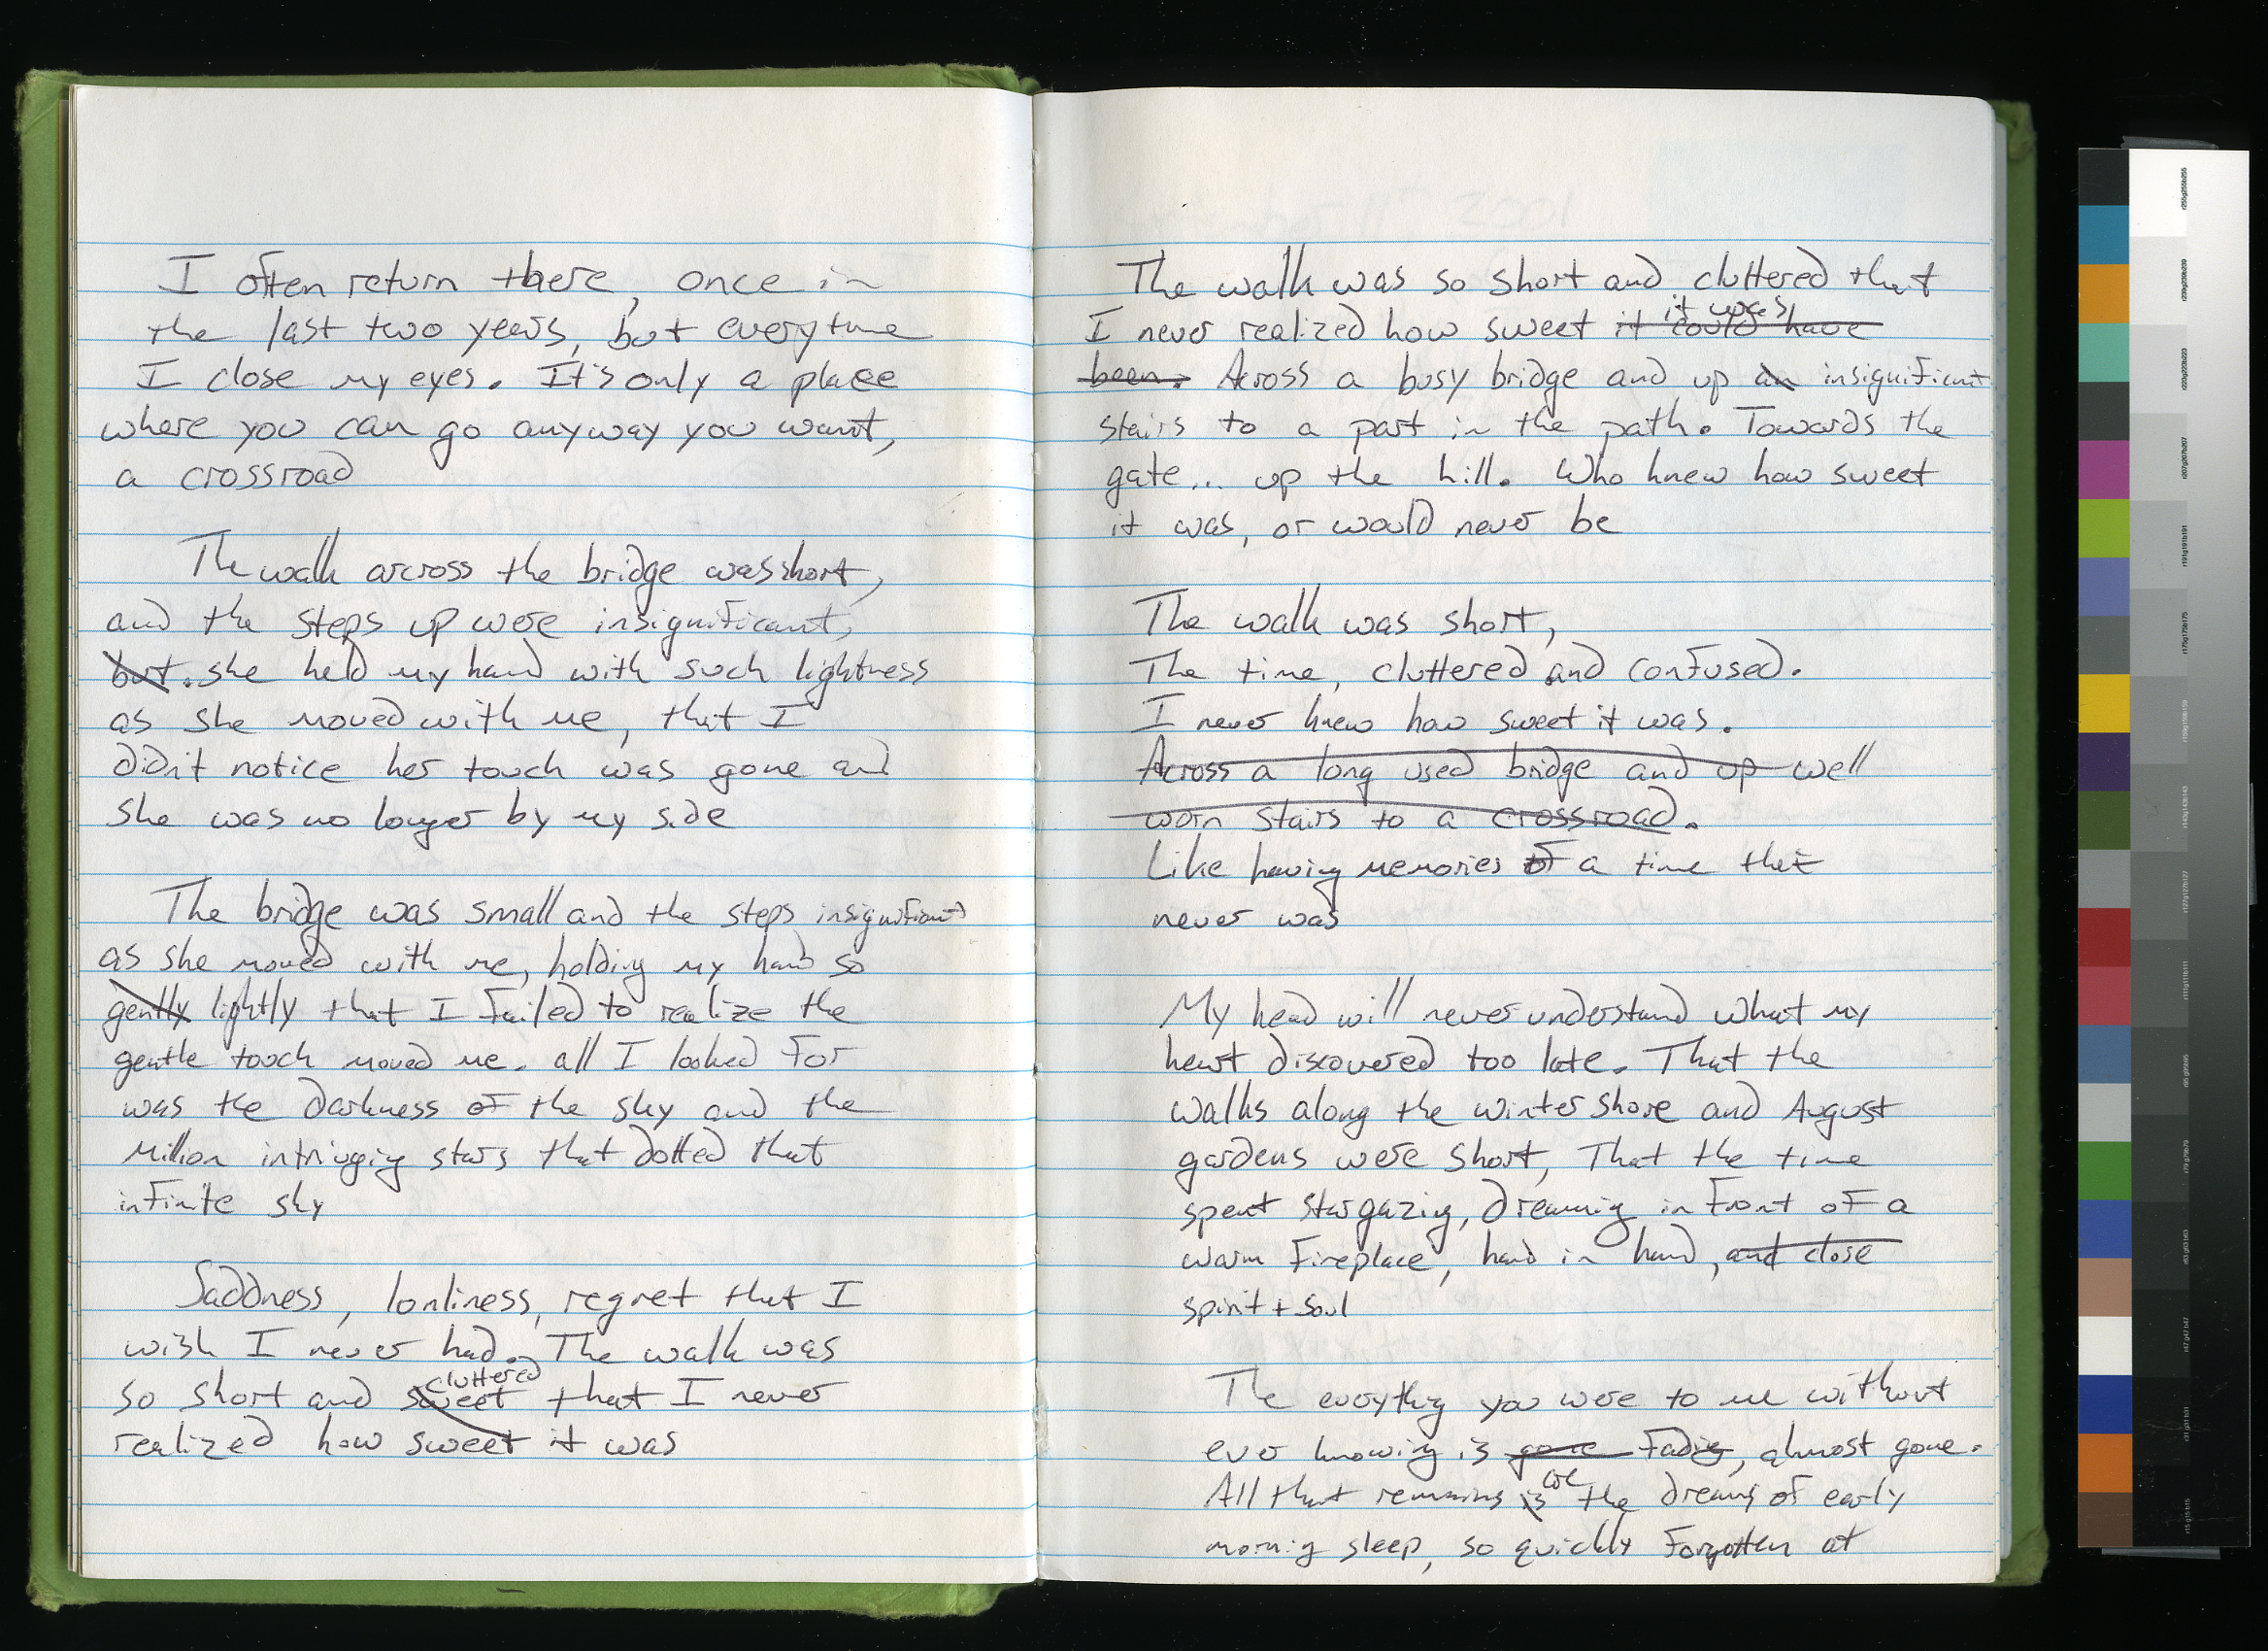 I often return there, once in
the last two years, but everytime
I close my eyes. It's only a place
where you can go anyway you want,
a crossroad
The walk arcross the bridge was short,
and the steps up were insignificant,
but. she held my hand with such lightness
as she moved with me, that I
didn't notice her touch was gone and
she was no longer by my side
The bridge was small and the steps insignificant
as she moved with me, holding my hand so
gently lightly that I failed to realize the
gentle touch moved me. all I looked for
was the darkness of the sky and the
million intriuging stars that dotted that
infinite sky
Saddness, lonliness, regret that I
wish I never had. The walk was
cluttered
so short and sweet that I never
realized how sweet it was
The walk was so short and cluttered that
it was
I never realized how sweet it could have
been. Across a busy bridge and up an insignificant
stairs to a part in the path. Towards the
gate... up the hill. Who knew how sweet
it was, or would never be
The walk was short,
The time, cluttered and confused.
I never knew how sweet it was.
Across a long used bridge and up well
worn stairs to a crossroad.
Like having memories of a time that
never was
My head will never understand what my
heart discovered too late. That the
walks along the winter shore and August
gardens were short, That the time
spent stargazing, dreaming in front of a
warm fireplace, hand in hand, and close
spirit + soul
The everything you were to me without
ever knowing is gone fading, almost gone.
are
All that remains is the dreams of early
morning sleep, so quickly forgotten at